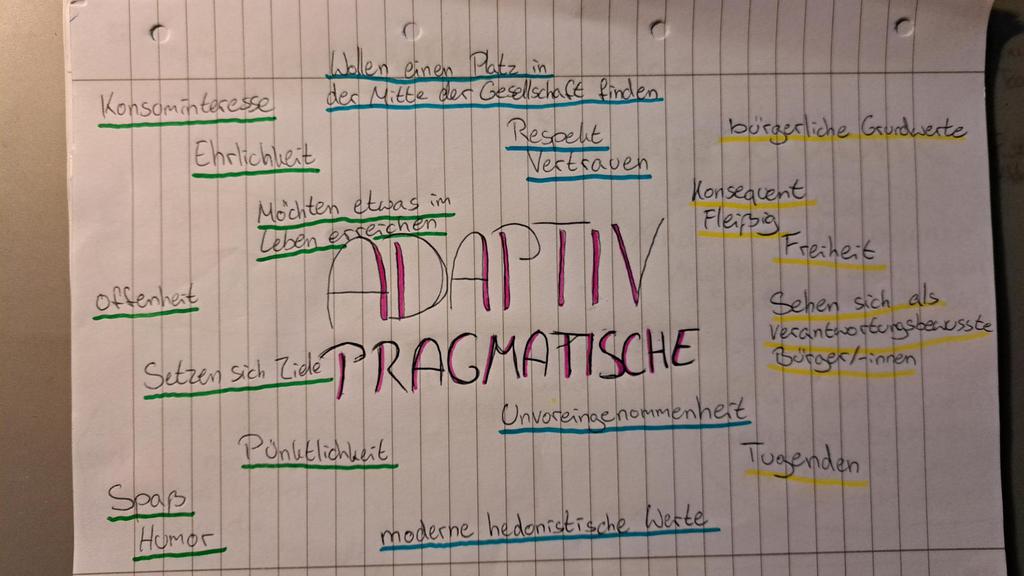 Wollen einen Platz in
der Mitte der Gesellschaft finden
Konsominteresse
Respekt
Vertrauen
bürgerliche Grundwerte
Ehrlichkeit
Konsequent
Fleißig
Freiheit
Möchten etwas im
Leben erreichen
ADAPTIV
PRAGMATISCHE
Offenheit
Sehen sich als
verantwortungsbewusste
Bürger/-innen
Setzen sich Ziele
Unvoreingenommenheit
Pünktlichkeit
Tugenden
Spaß
Humor
moderne hedonistische Werte